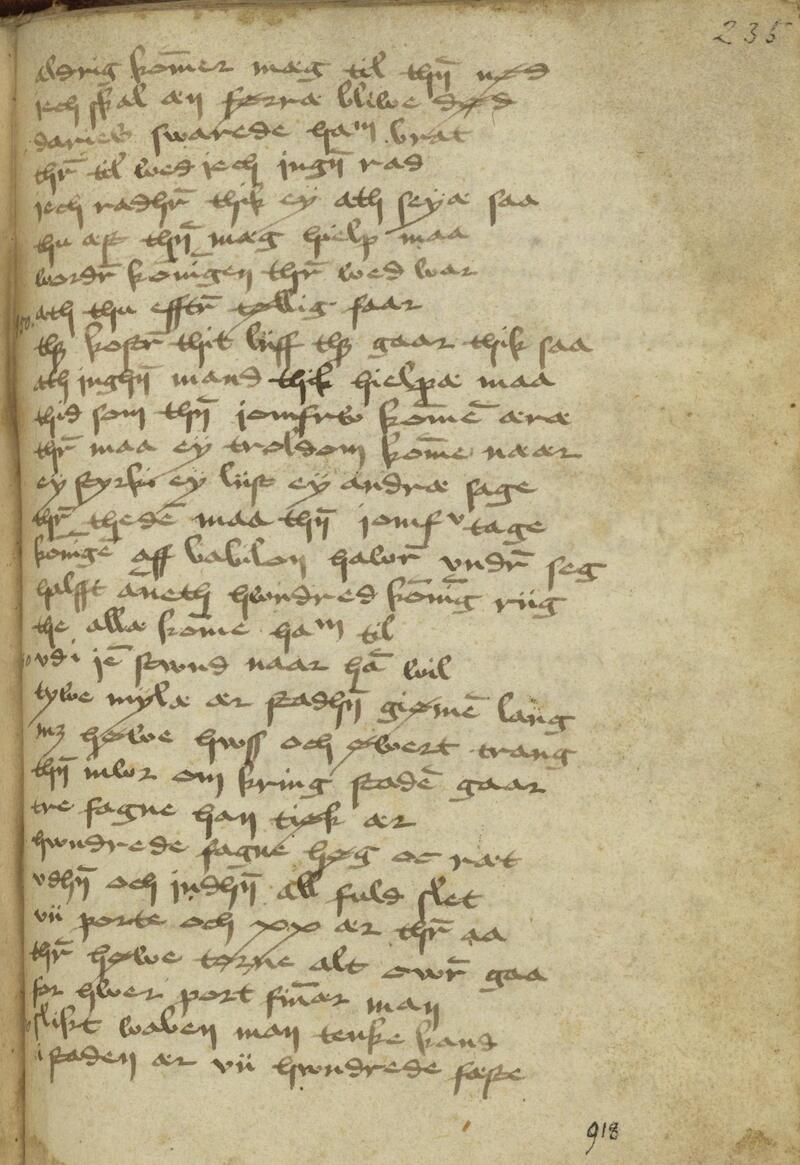 235
aldrig kom̄er mæg til thn̄ nød
jech skal æn førræ bliwe død
dariews swarede ham brat
thr̄ til wed jech jngn̄ rad
jech radhr̄ thik ey ath seyæ saa
thu æst thn̄ mæg hielp maa
wordr̄ konīgen thr̄ wed war
ath thu efftr̄ tøllig faar
thȝ kostr̄ thit liiff thȝ gaar thik saa
ath jnghn̄ mand thik hielpæ maa
thid som thn̄ jomfrw kom̄ē æræ
thr̄ maa ey troldom kom̄e næær
ey styrke ey liist ey andræ sage
thr̄ thedē maa thn̄ jomfv tage
konīgē aff babilon hawr̄ vndr̄ seg
halfft an̄eth hwndred konīg riig
the allæ kom̄e ham til
vdi jē stwnd naar hā wil
tywe mylæ ær stadhn̄ giømē lang
mȝ høwe hwss och øwert trang
thn̄ mwr om kring stadē gaar
tre fagne han tiøk ær
hwndrede fagne høg oc ræt
vdhn̄ och jndhn̄ all fuld slet
vii porte och xx ær thr̄ aa
thr̄ høwe torne alt owr̄ gaa
for hwer port fin̄ær man
slikt waben man tenke kand
i staden ær vii hwndrede fæste
918